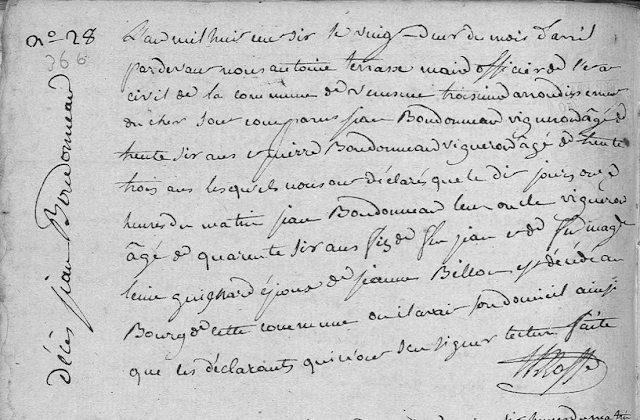 no 28
366
Décès jean Boudonneau
L'an mil huit cen six le vingt deux du mois d'avril
pardevant nous antoine terrasse maire officier de l'etat
civil de la commune de venesme troisieme arrondissement
du cher sont comparus jean Boudonneau vigneron âgé de
trente six ans et pierre Boudonneau vigneron âgé de trente
trois ans lesquels nous ont déclarés que le dit jour onze
heures du matin jean Boudonneau leur oncle vigneron
âgé de quarente six ans fils de feu jean et de feu mag
leine guignard époux de jeanne Billon est décédé au
Bourg de cette commune ou il avait son domicil ainsi
que les déclarants qui n'ont seu signer lecture faite